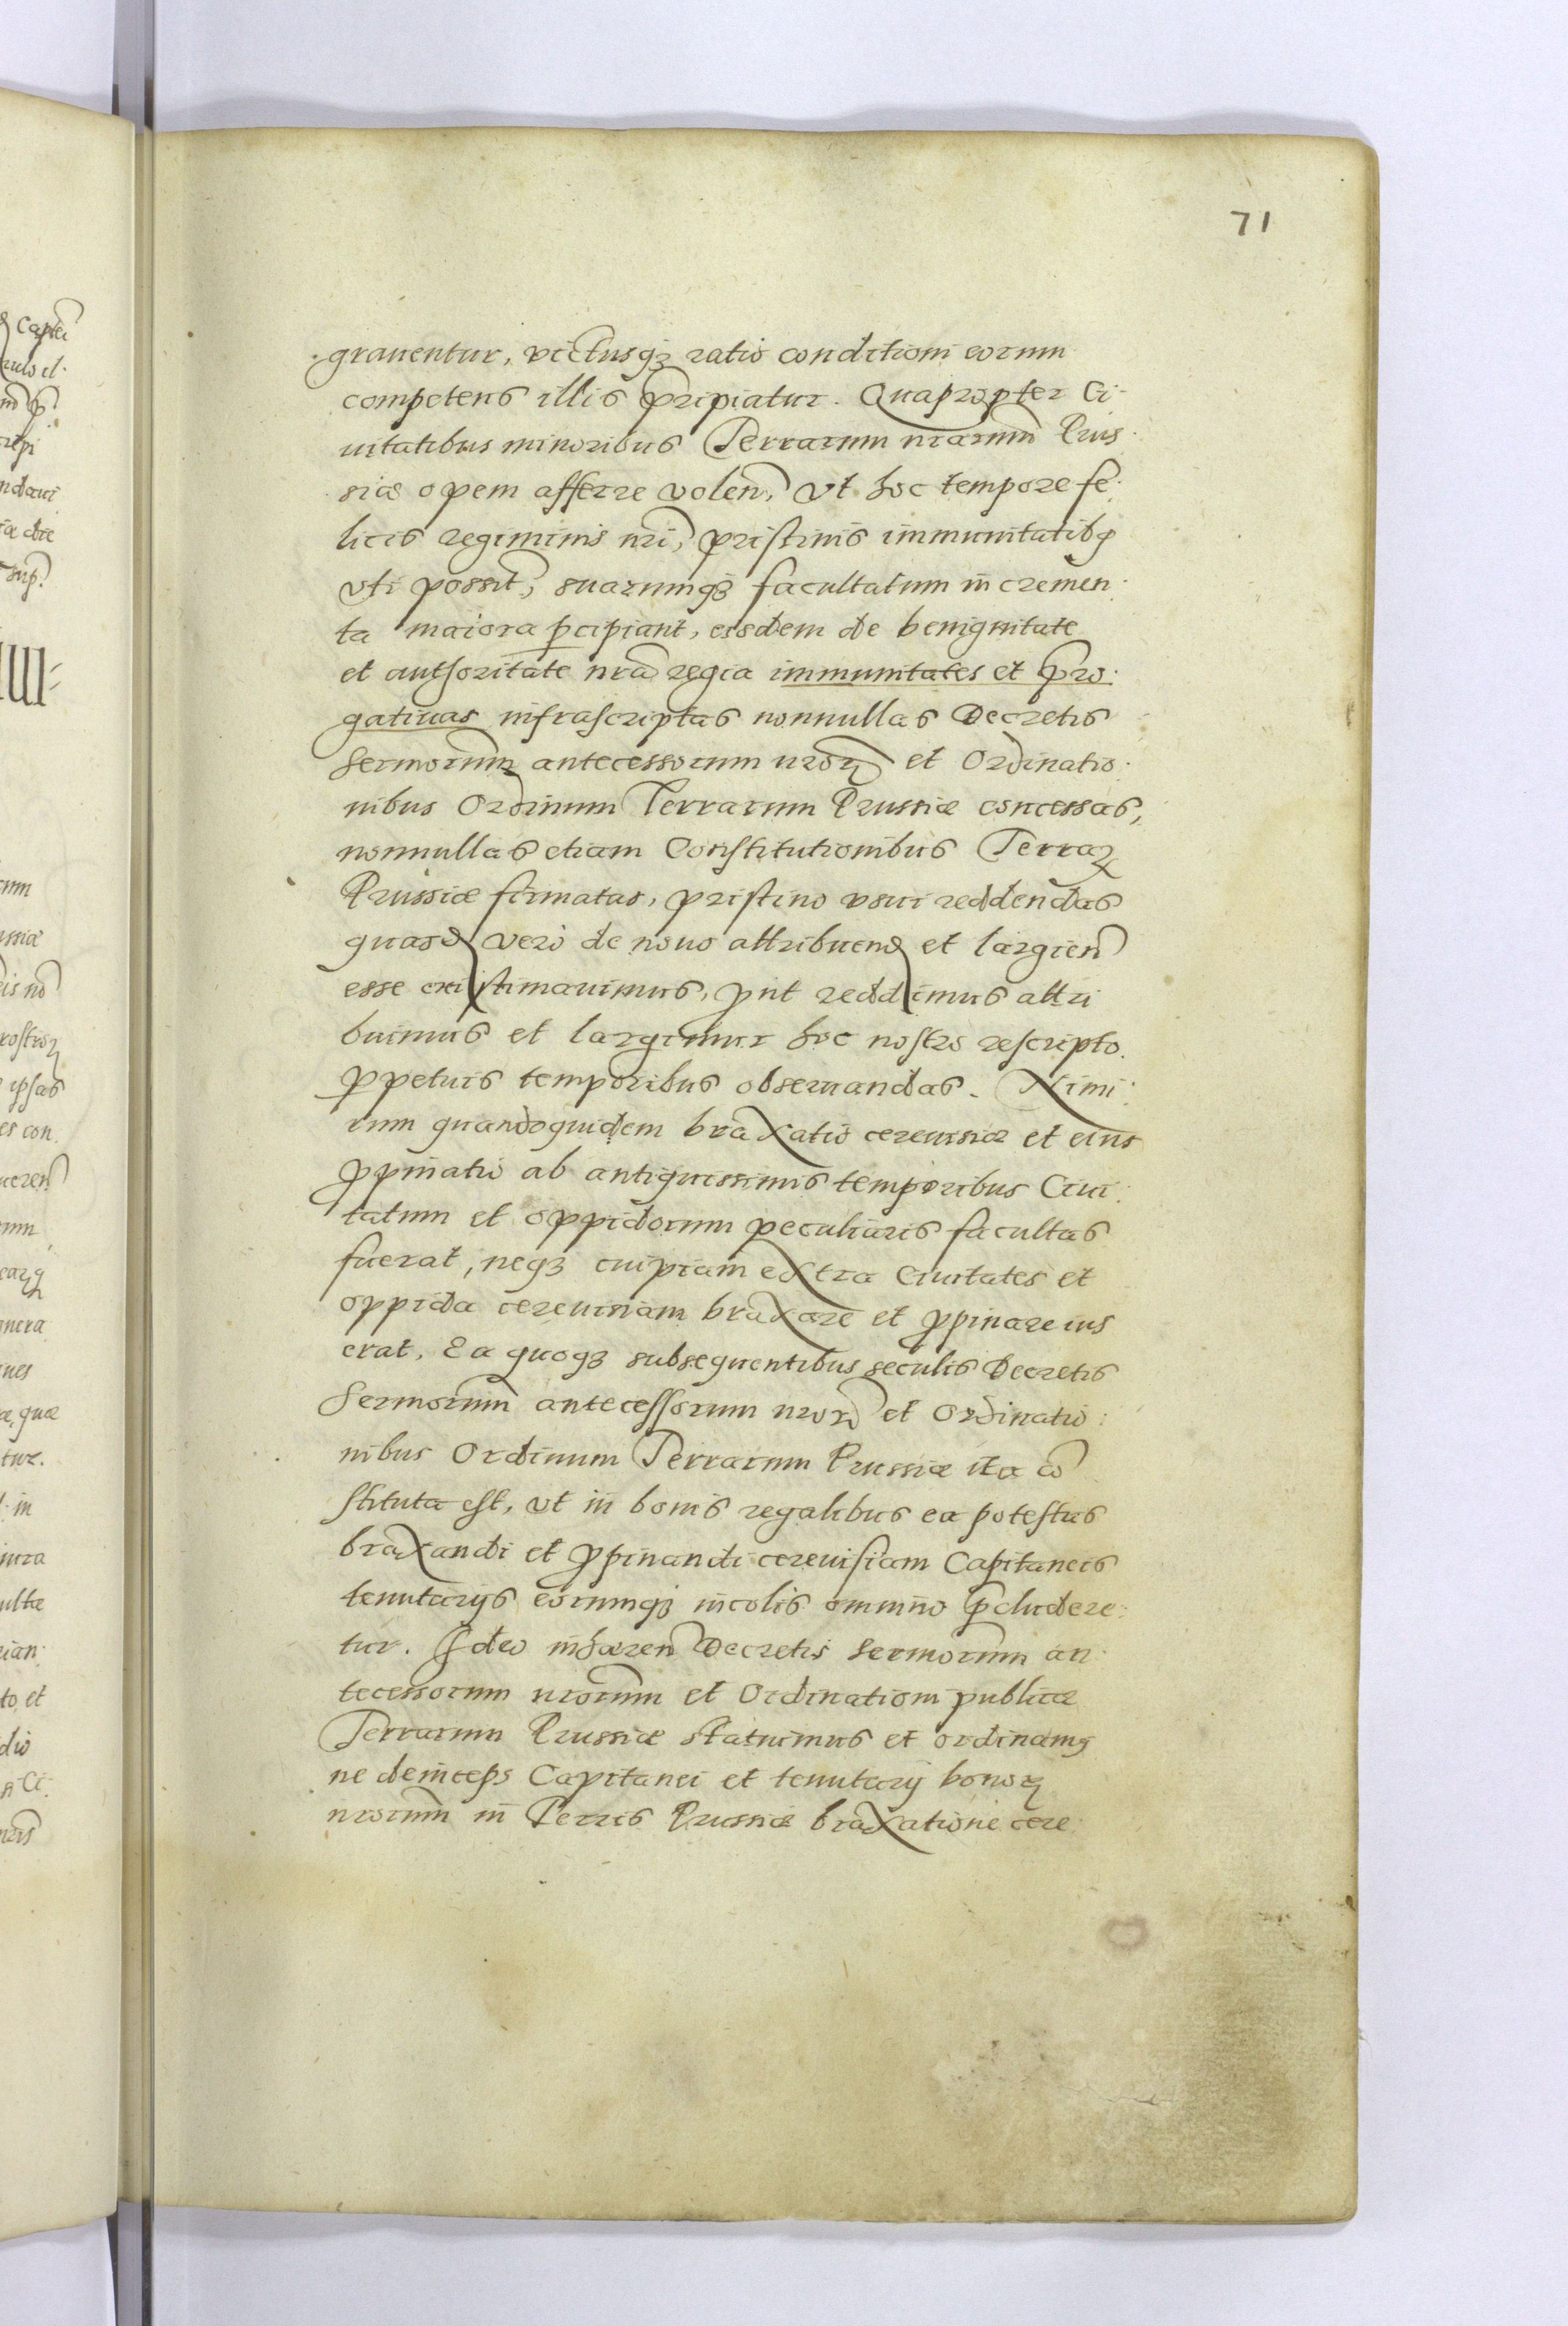 71
grauentur, victusq꜄ ratio conditioni eorum
competens illis præripiatur. Quapropter Ci-
uitatibus minoribus Terrarum nrarum Prus-
siæ opem afferre volen, vt hoc tempore fe-
licis regiminis nri, pristinis immunitatibꝫ
vti possit, suarumqꝫ facultatum incremen-
ta maiora ꝑcipiant, eisdem de benignitate
et authoritate nra regia immunitates et præro-
gatiuas infrascriptas nonnullas Decretis
Sermorum antecessorum nroꝝ et Ordinatio-
nibus Ordinum Terrarum Prussiæ concessas,
nonnullas etiam Constitutionibus Terraꝝ
Prussiæ firmatas, pristino vsui reddendas
quasd vero de nouo attribuend et largien
esse existimauimus, put reddimus attri
buimus et largimur hoc nostro rescripto
ꝑpetuis temporibus obseruandas. Nimi-
rum quandoquidem braxatio cereuisiæ et eius
ꝓpinatio ab antiquissimis temporibus Ciui-
tatum et oppidorum peculiaris facultas
fuerat, neqꝫ cuipiam extra Ciuitates et
oppida cereuisiam braxare et ꝓpinare ius
erat. Ea quoqꝫ subsequentibus seculis Decretis
Sermorum antecessorum nrorꝝ et Ordinatio-
nibus Ordinum Terrarum Prussiæ ita cō
stituta est, vt in bonis regalibus ea potestas
braxandi et ꝓpinandi cereuisiam Capitaneis
tenutarijs eorumqꝫ incolis omnino præcludere-
tur. Ideo inhæren Decretis Sermorum an-
tecessorum nrorum et Ordinationi publicæ
Terrarum Prussiæ statuimus et ordinamꝰ
ne deinceps Capitanei et tenutarij bonoꝝ
nrorum in Terris Prussiæ braxatione cere-